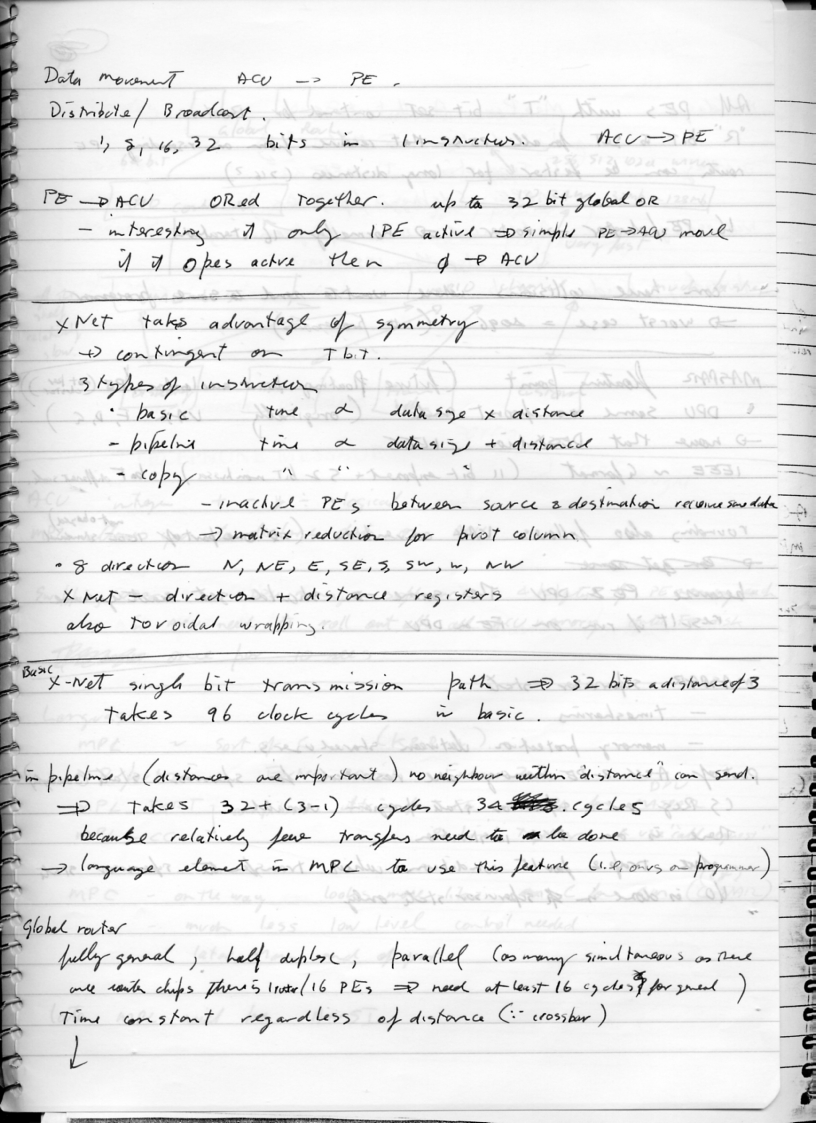 Data movement ACU -> PE.
Distribute / Broadcast.
1, 8, 16, 32 bits in 1 instruction. ACU -> PE
PE -> ACU ORed together. up to 32 bit global OR
- interesting if only 1 PE active => simple PE -> ACU move
if 0 pes active then ϕ -> ACU
X Net takes advantage of symmetry
-> contingent on T bit.
3 types of instruction
· basic time ∝ data size x distance
- pipeline time ∝ data size + distance
- copy " " "
- inactive PEs between source & destination receive data
-> matrix reduction for pivot column
· 8 direction N, NE, E, SE, S, SW, W, NW
X Net - direction + distance registers
also toroidal wrapping.
Basic
X-Net single bit transmission path => 32 bits a distance of 3
takes 96 clock cycles in basic.
in pipeline (distances are important) no neighbour within "distance" can send.
=> takes 32 + (3-1) cycles 34 cycles
because relatively few transfers need to be done
-> language element in MPC to use this feature (i.e, onus on programmer)
Global router
fully general, half duplex, parallel (as many simultaneous as there
are router chips there is 1 router/16 PEs => need at least 16 cycles for general)
Time constant regardless of distance (∵ crossbar)
↓